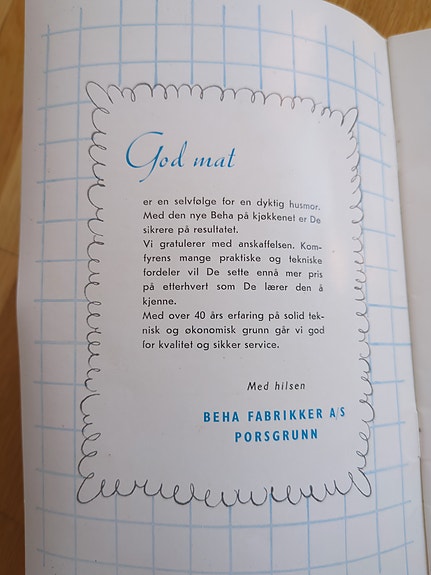 God mat
er en selvfølge for en dyktig husmor.
Med den nye Beha på kjøkkenet er De
sikrere på resultatet.
Vi gratulerer med anskaffelsen. Kom-
fyrens mange praktiske og tekniske
fordeler vil De sette ennå mer pris
på etterhvert som De lærer den å
kjenne.
Med over 40 års erfaring på solid tek-
nisk og økonomisk grunn går vi god
for kvalitet og sikker service.
Med hilsen
BEHA FABRIKKER A/S
PORSGRUNN